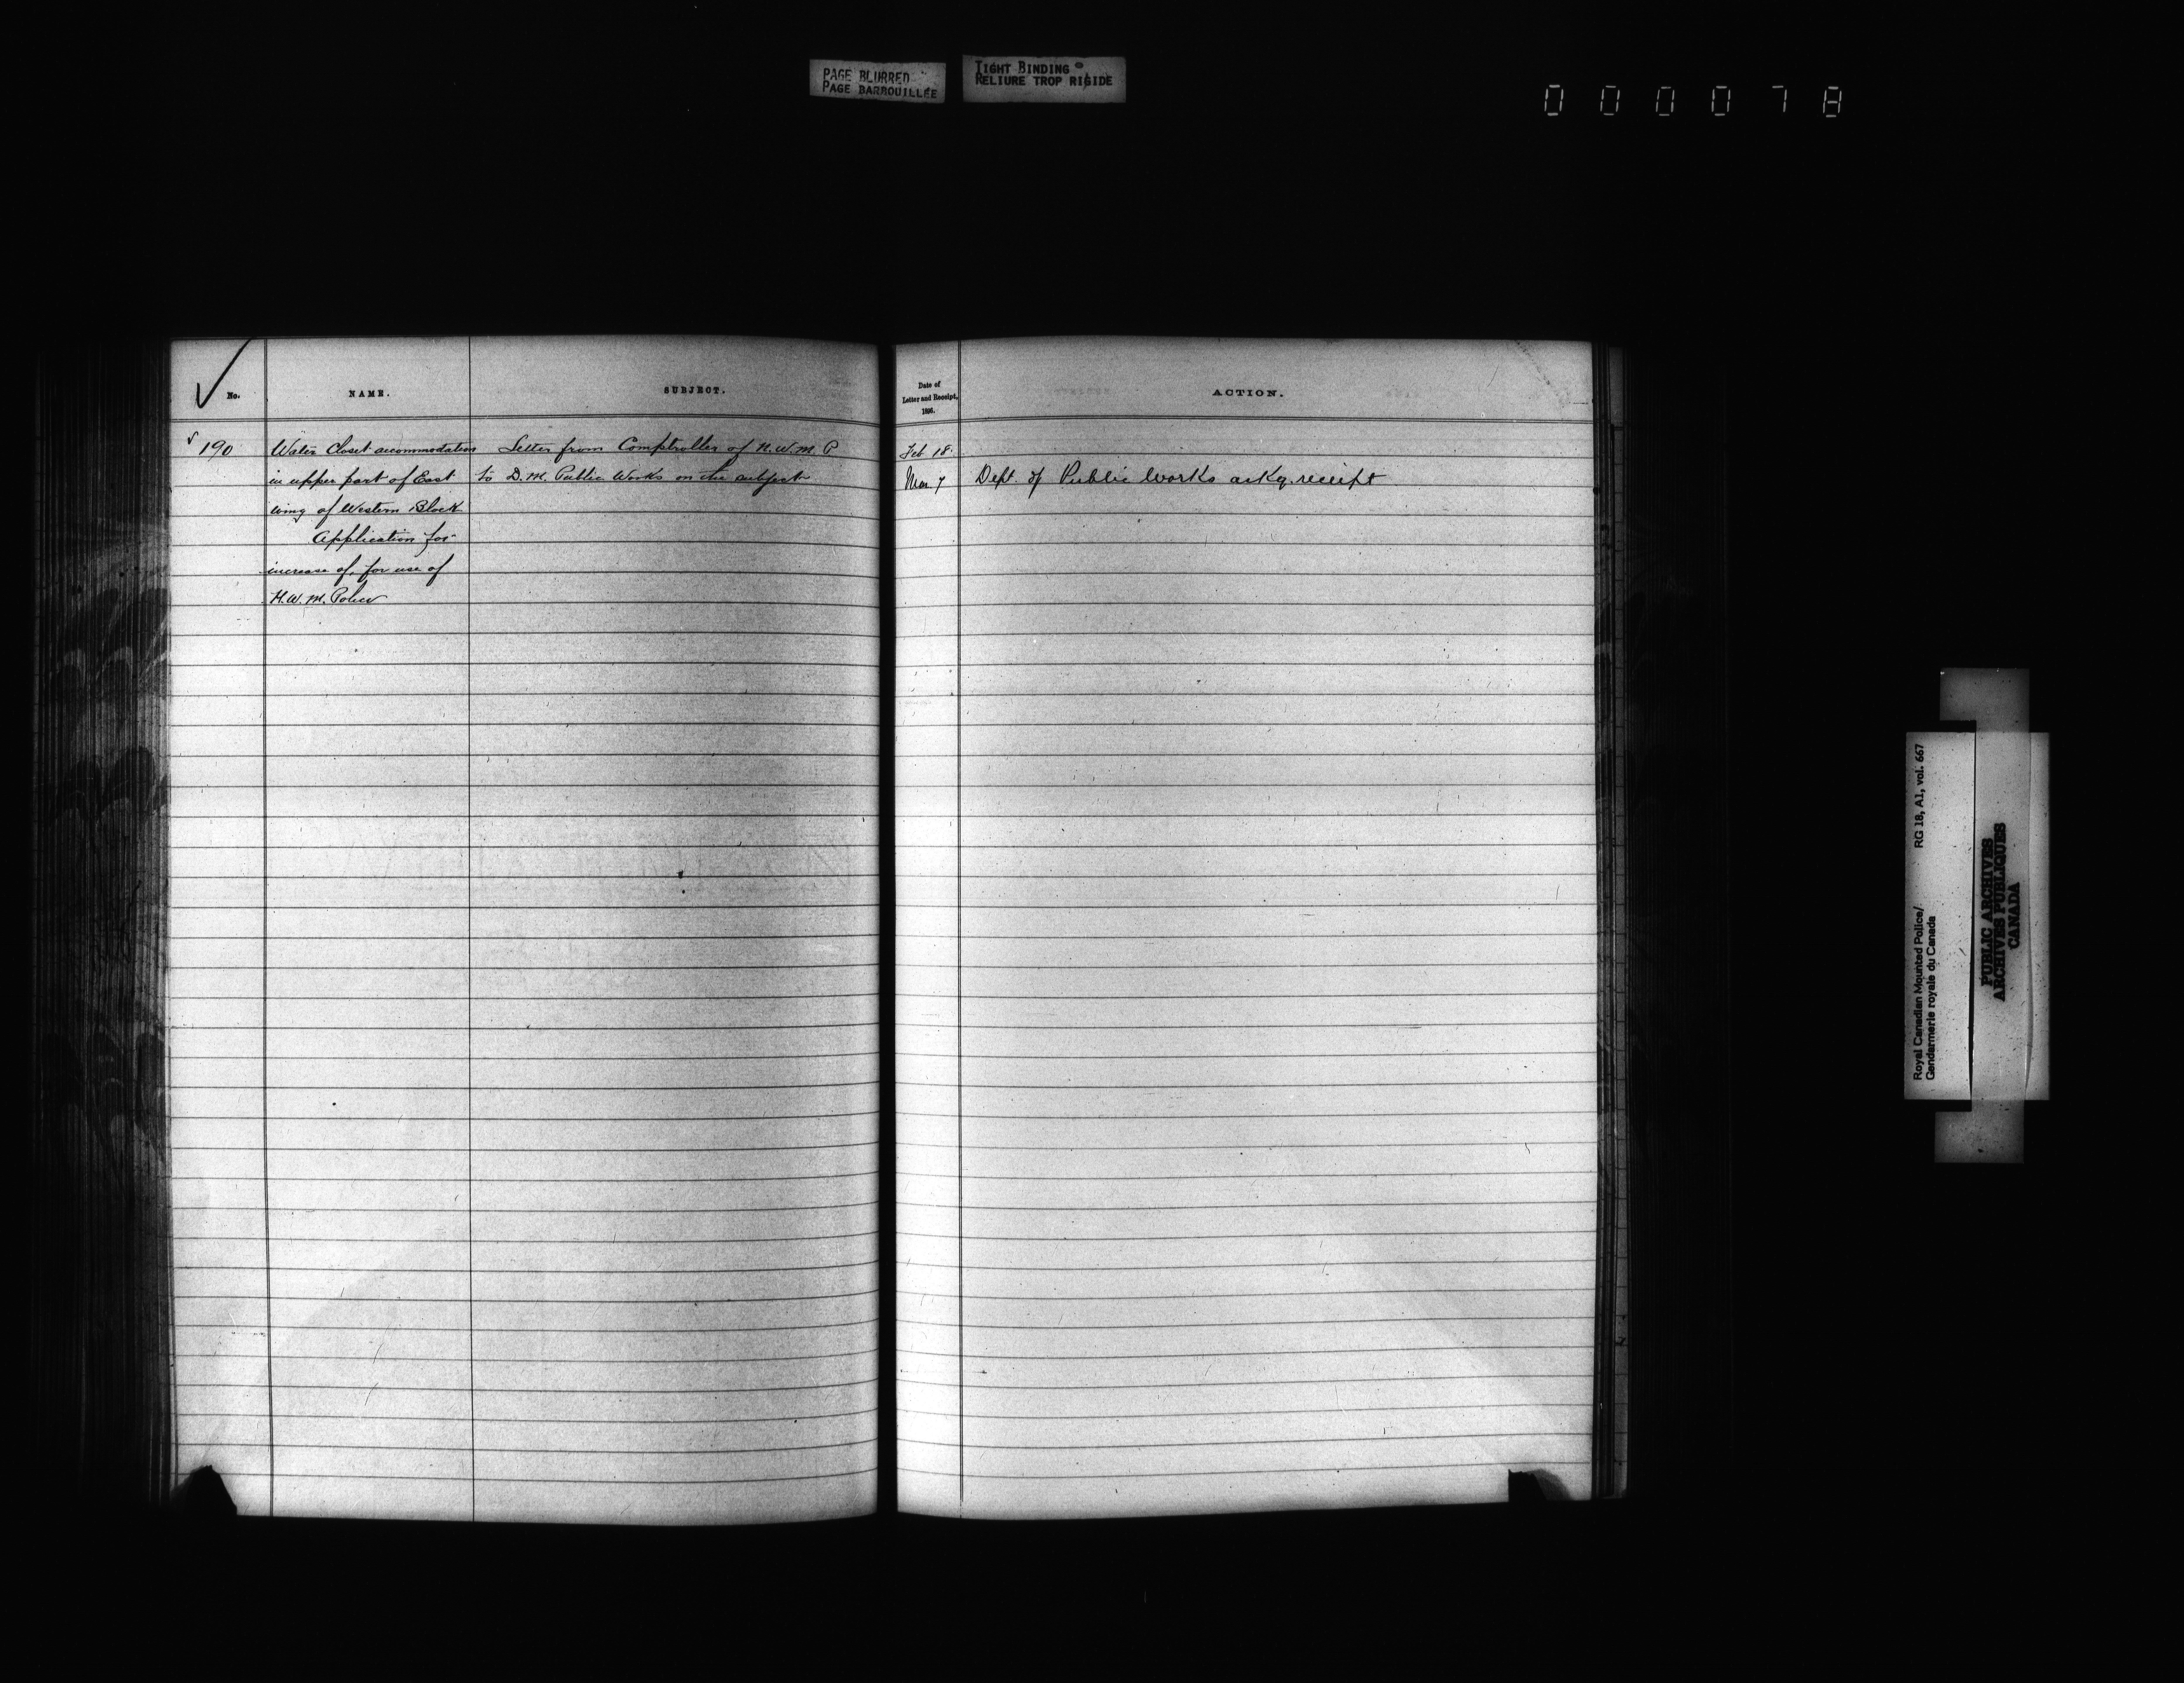 PAGE BLURRED
PAGE BARBOUILLÉE
TIGHT BINDING
RELIURE TROP RIGIDE
000078
No.
NAME.
SUBJECT.
190
Water Closet accommodation
in upper part of East
wing of Western Block
Application for
increase of, for use of
N.W.M. Police
Letter from Comptroller of N.W.M.P.
to D.M. Public Works on the subject
Date of
Letter and Receipt,
1891.
ACTION.
Feb 18.
Mar 7
Dept. of Public Works ackg. receipt
Royal Canadian Mounted Police/ RG 18, A1, vol. 667
Gendarmerie royale du Canada
PUBLIC ARCHIVES
ARCHIVES PUBLIQUES
CANADA